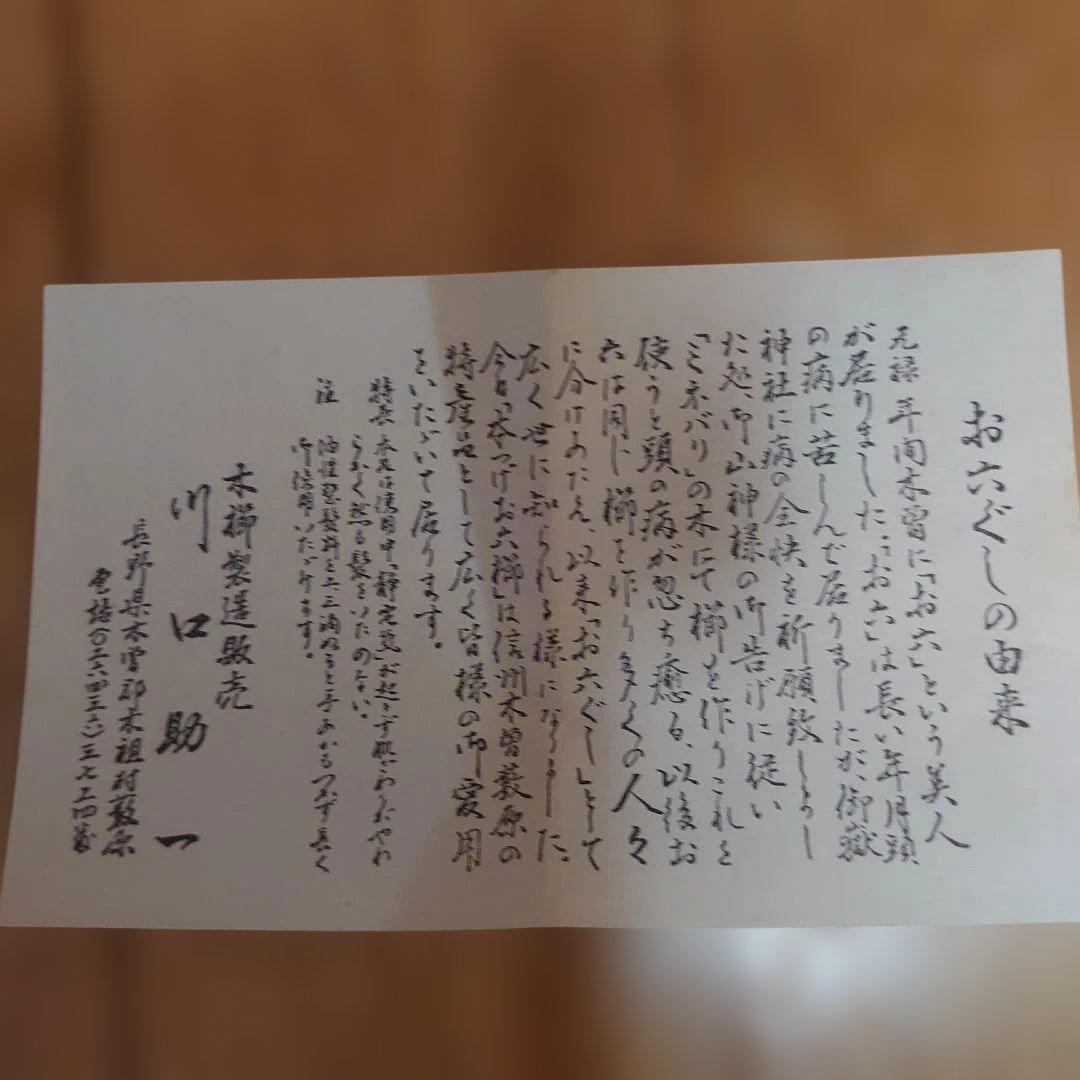 お六ぐしの由来
元禄年間木曽に「お六」という美人
が居りました。「お六」は長い年月頭
の病に苦しんで居りましたが、御嶽
神社に病の全快を祈願致しまし
た処、御山神様の御告げに従い
「ミネバリ」の木にて櫛を作りこれを
使うと頭の病が忽ち癒る、以後お
六は同じ櫛を作り多くの人々
に分けあたえ、以来「お六ぐし」として
広く世に知られる様になりました。
今日「本つげお六櫛」は信州木曽薮原の
特産品として広く皆様の御愛用
をいただいて居ります。
特長 本品は使用中、静電気が起らず肌ざわりがやわ
らかく然も髪をいためない。
注 油性整髪料を二、三滴ぬると手あかもつかず長く
御使用いただけます。
木櫛製造販売
川口助一
長野県木曽郡木祖村薮原
電話〇二六四三(六)三七二四番